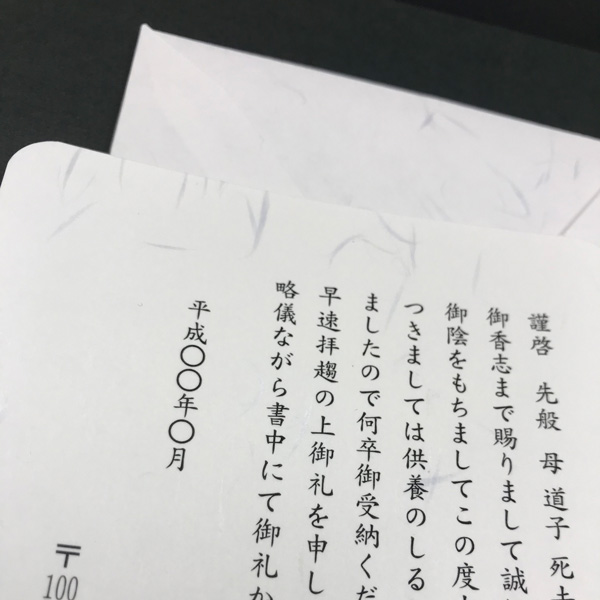 謹啓 先般 母 道子 死
御香志まで賜りまして誠
御陰をもちましてこの度
つきましては供養のしる
ましたので何卒御受納くだ
早速拝趨の上御礼を申し
略儀ながら書中にて御礼か
平成〇〇年〇月
〒100